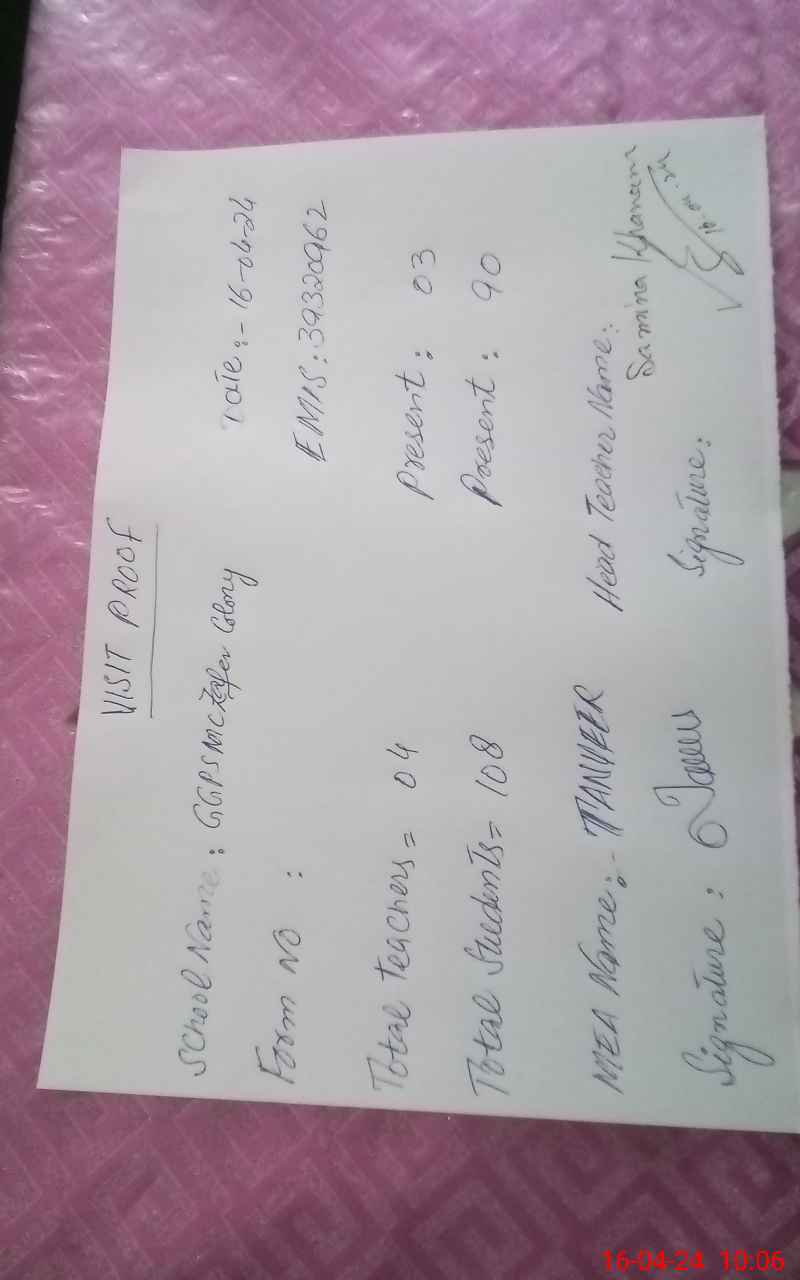 VISIT PROOF
Date:- 16-04-24
School Name: GGPS MC Zafer Colony
EMIS: 39320962
Form NO :
Total Teachers = 04 Present : 03
Total Students = 108 Present : 90
MEA Name:- TANVEER Head Teacher Name:
Samina Khanam
Signature: Signature:
16-04-24
16-04-24 10:06